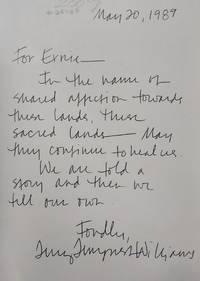 May 20, 1989
For Ernie—
In the name of
shared affection towards
these lands, these
sacred lands— May
they continue to heal us.
We are told a
story and then we
tell our own.
Fondly,
Terry Tempest Williams